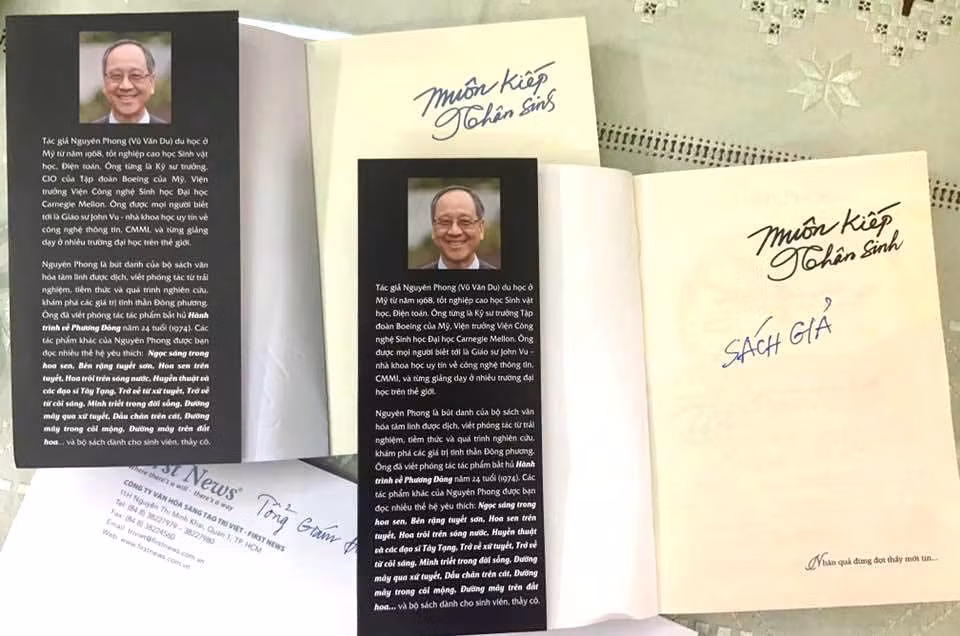 Tác giả Nguyên Phong (Vũ Văn Du) du học ở
Mỹ từ năm 1968, tốt nghiệp cao học Sinh vật
học, Điện toán. Ông từng là Kỹ sư trưởng,
CIO của Tập đoàn Boeing của Mỹ, Viện
trưởng Viện Công nghệ Sinh học Đại học
Carnegie Mellon. Ông được mọi người biết
tới là Giáo sư John Vu - nhà khoa học uy tín về
công nghệ thông tin, CMMI, và từng giảng
dạy ở nhiều trường đại học trên thế giới.
Nguyên Phong là bút danh của bộ sách văn
hóa tâm linh được dịch, viết phóng tác từ trải
nghiệm, tiềm thức và quá trình nghiên cứu,
khám phá các giá trị tinh thần Đông phương.
Ông đã viết phóng tác tác phẩm bất hủ Hành
trình về Phương Đông năm 24 tuổi (1974). Các
tác phẩm khác của Nguyên Phong được bạn
đọc nhiều thế hệ yêu thích: Ngọc sáng trong
hoa sen, Bên rặng tuyết sơn, Hoa sen trên
tuyết, Hoa trôi trên sóng nước, Huyền thuật và
các đạo sĩ Tây Tạng, Trở về từ xứ tuyết, Trở về
từ cõi sáng, Minh triết trong đời sống, Đường
mây qua xứ tuyết, Dấu chân trên cát, Đường
mây trong cõi mộng, Đường mây trên đất
hoa... và bộ sách dành cho sinh viên, thầy cô.
Muôn Kiếp
Nhân Sinh
First News®
Where there's a will - there's a way
CÔNG TY VĂN HÓA SÁNG TẠO TRÍ VIỆT - FIRST NEWS
11H Nguyễn Thị Minh Khai, Quận 1, TP. HCM
Tel: (84 8) 38227979 - 38227980
Fax: (84 8) 38224560
Email: triviet@firstnews.com.vn
Web: www.firstnews.com.vn
Tổng Giám
Tác giả Nguyên Phong (Vũ Văn Du) du học ở
Mỹ từ năm 1968, tốt nghiệp cao học Sinh vật
học, Điện toán. Ông từng là Kỹ sư trưởng Tập
đoàn Boeing của Mỹ, Viện trưởng Viện Công
nghệ Sinh học Đại học Carnegie Mellon. Ông
được mọi người biết tới là Giáo sư John Vu -
nhà khoa học uy tín về công nghệ thông tin,
CMMI, và từng giảng dạy ở nhiều trường đại
học trên thế giới.
Nguyên Phong là bút danh của bộ sách văn
hóa tâm linh được dịch, viết phóng tác từ trải
nghiệm, tiềm thức và quá trình nghiên cứu,
khám phá các giá trị tinh thần Đông phương.
Ông đã viết phóng tác tác phẩm bất hủ Hành
trình về Phương Đông năm 24 tuổi (1974). Các
tác phẩm khác của Nguyên Phong được bạn
đọc nhiều thế hệ yêu thích: Ngọc sáng trong
hoa sen, Bên rặng tuyết sơn, Hoa sen trên
tuyết, Hoa trôi trên sóng nước, Huyền thuật
và các đạo sĩ Tây Tạng, Trở về xứ tuyết, Trở về
từ cõi sáng, Minh triết trong đời sống, Đường
mây qua xứ tuyết, Dấu chân trên cát, Đường
mây trong cõi mộng, Đường mây trên đất
hoa... và bộ sách dành cho sinh viên, thầy cô.
Muôn Kiếp
Nhân Sinh
SÁCH GIẢ
Nhân quả đừng đợi thấy mới tin...